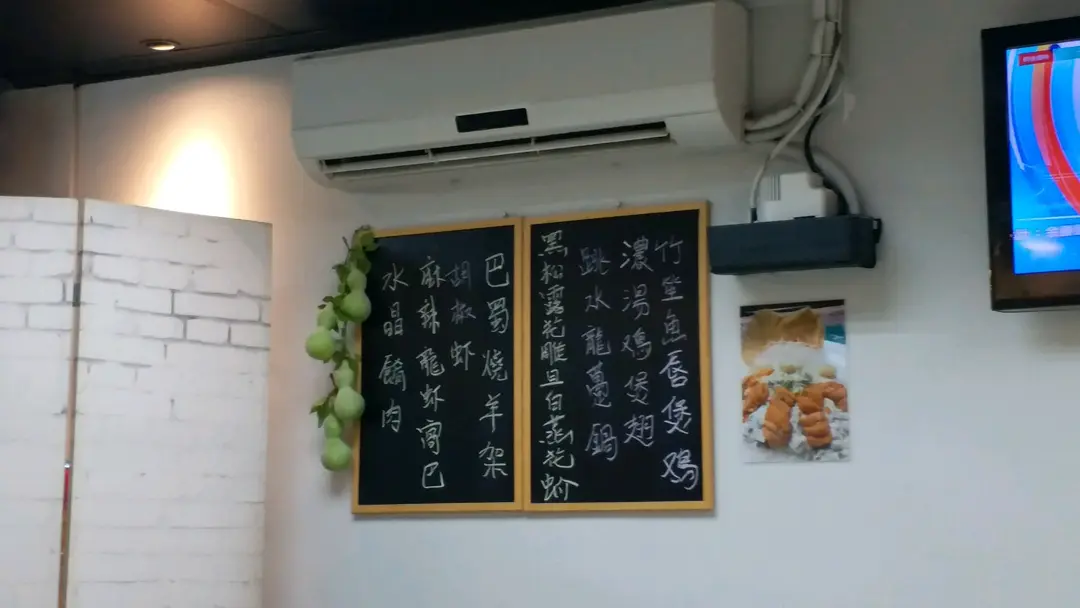 竹笙魚唇煲鸡
濃湯鸡煲翅
跳水龍躉鍋
黑松露花雕旦白蒸花蚧
巴蜀燒羊架
胡椒蝦
麻辣龍虾窝巴
水晶餚肉